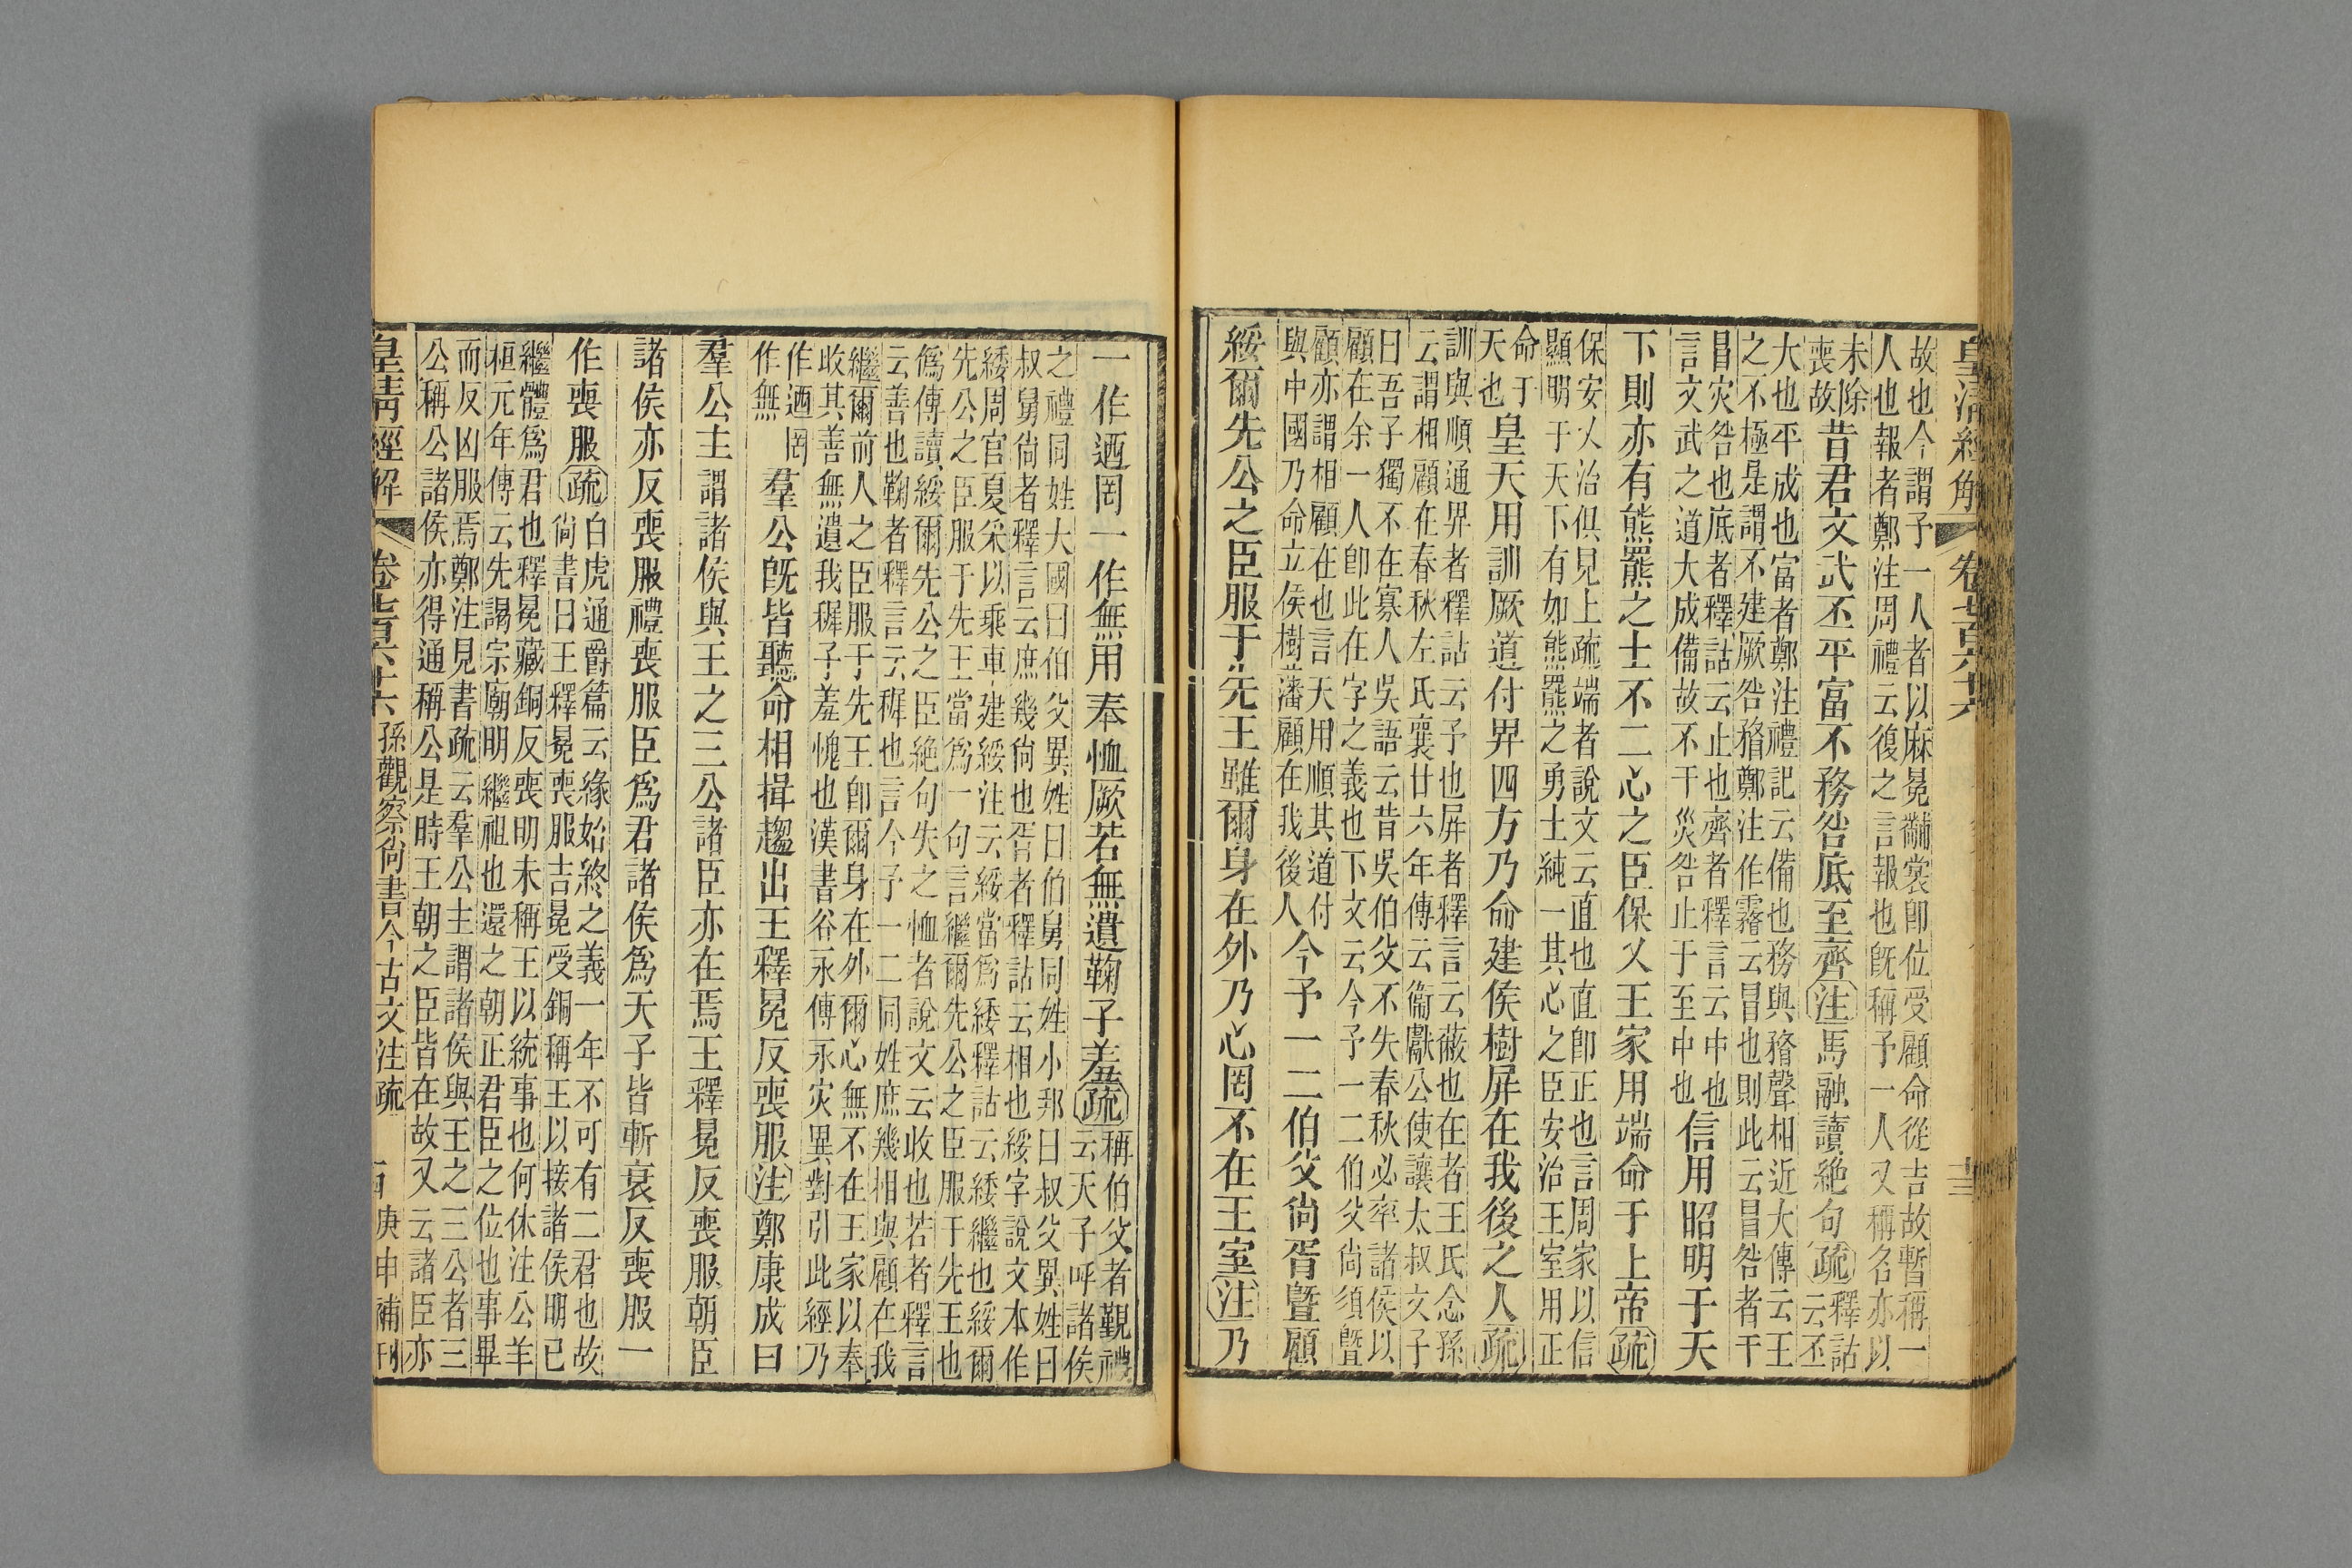 皇清經解 卷七百六十六 十三
故也今謂予一人者以麻冕黼裳卽位受顧命從吉故暫稱一
人也報者鄭注周禮云復之言報也旣稱予一人又稱名亦以
未除
喪故
昔君文武丕平富不務咎厎至齊注馬融讀絕句疏
釋詁
云丕
大也平成也富者鄭注禮記云備也務與瞀聲相近大傳云王
之不極是謂不建厥咎瞀鄭注作霿云冒也則此云冒咎者干
冒灾咎也厎者釋詁云止也齊者釋言云中也
言文武之道大成備故不干災咎止于至中也
信用昭明于天
下則亦有熊羆之士不二心之臣保乂王家用端命于上帝疏
保安乂治俱見上疏端者說文云直也直卽正也言周家以信
顯明于天下有如熊羆之勇士純一其心之臣安治王室用正
命于
天也
皇天用訓厥道付畀四方乃命建侯樹屏在我後之人疏
訓與順通畀者釋詁云予也屏者釋言云蔽也在者王氏念孫
云謂相顧在春秋左氏襄廿六年傳云衞獻公使讓太叔文子
曰吾子獨不在寡人吳語云昔吳伯父不失春秋必率諸侯以
顧在余一人卽此在字之義也下文云今予一二伯父尙須曁
顧亦謂相顧在也言天用順其道付
與中國乃命立侯樹藩顧在我後人
今予一二伯父尙胥曁顧
綏爾先公之臣服于先王雖爾身在外乃心罔不在王室注乃
一作迺罔一作無用奉恤厥若無遺鞠子羞疏
稱伯父者覲禮
云天子呼諸侯
之禮同姓大國曰伯父異姓曰伯舅同姓小邦曰叔父異姓曰
叔舅尙者釋言云庶幾尙也胥者釋詁云相也綏字說文本作
緌周官夏采以乘車建綏注云綏當爲緌釋詁云緌繼也綏爾
先公之臣服于先王當爲一句言繼爾先公之臣服于先王也
僞傳讀綏爾先公之臣絕句失之恤者說文云收也若者釋言
云善也鞠者釋言云穉也言今予一二同姓庶幾相與顧在我
繼爾前人之臣服于先王卽爾身在外爾心無不在王家以奉
收其善無遺我穉子羞愧也漢書谷永傳永灾異對引此經乃
作迺罔
作無
羣公旣皆聽命相揖趨出王釋冕反喪服注鄭康成曰
羣公主謂諸侯與王之三公諸臣亦在焉王釋冕反喪服朝臣
諸侯亦反喪服禮喪服臣爲君諸侯爲天子皆斬衰反喪服一
作喪服疏
白虎通爵篇云緣始終之義一年不可有二君也故
尙書曰王釋冕喪服吉冕受銅稱王以接諸侯明已
繼體爲君也釋冕藏銅反喪明未稱王以統事也何休注公羊
桓元年傳云先謁宗廟明繼祖也還之朝正君臣之位也事畢
而反凶服焉鄭注見書疏云羣公主謂諸侯與王之三公者三
公稱公諸侯亦得通稱公是時王朝之臣皆在故又云諸臣亦
皇清經解 卷七百六十六 孫觀察尙書今古文注疏 庚申補刊